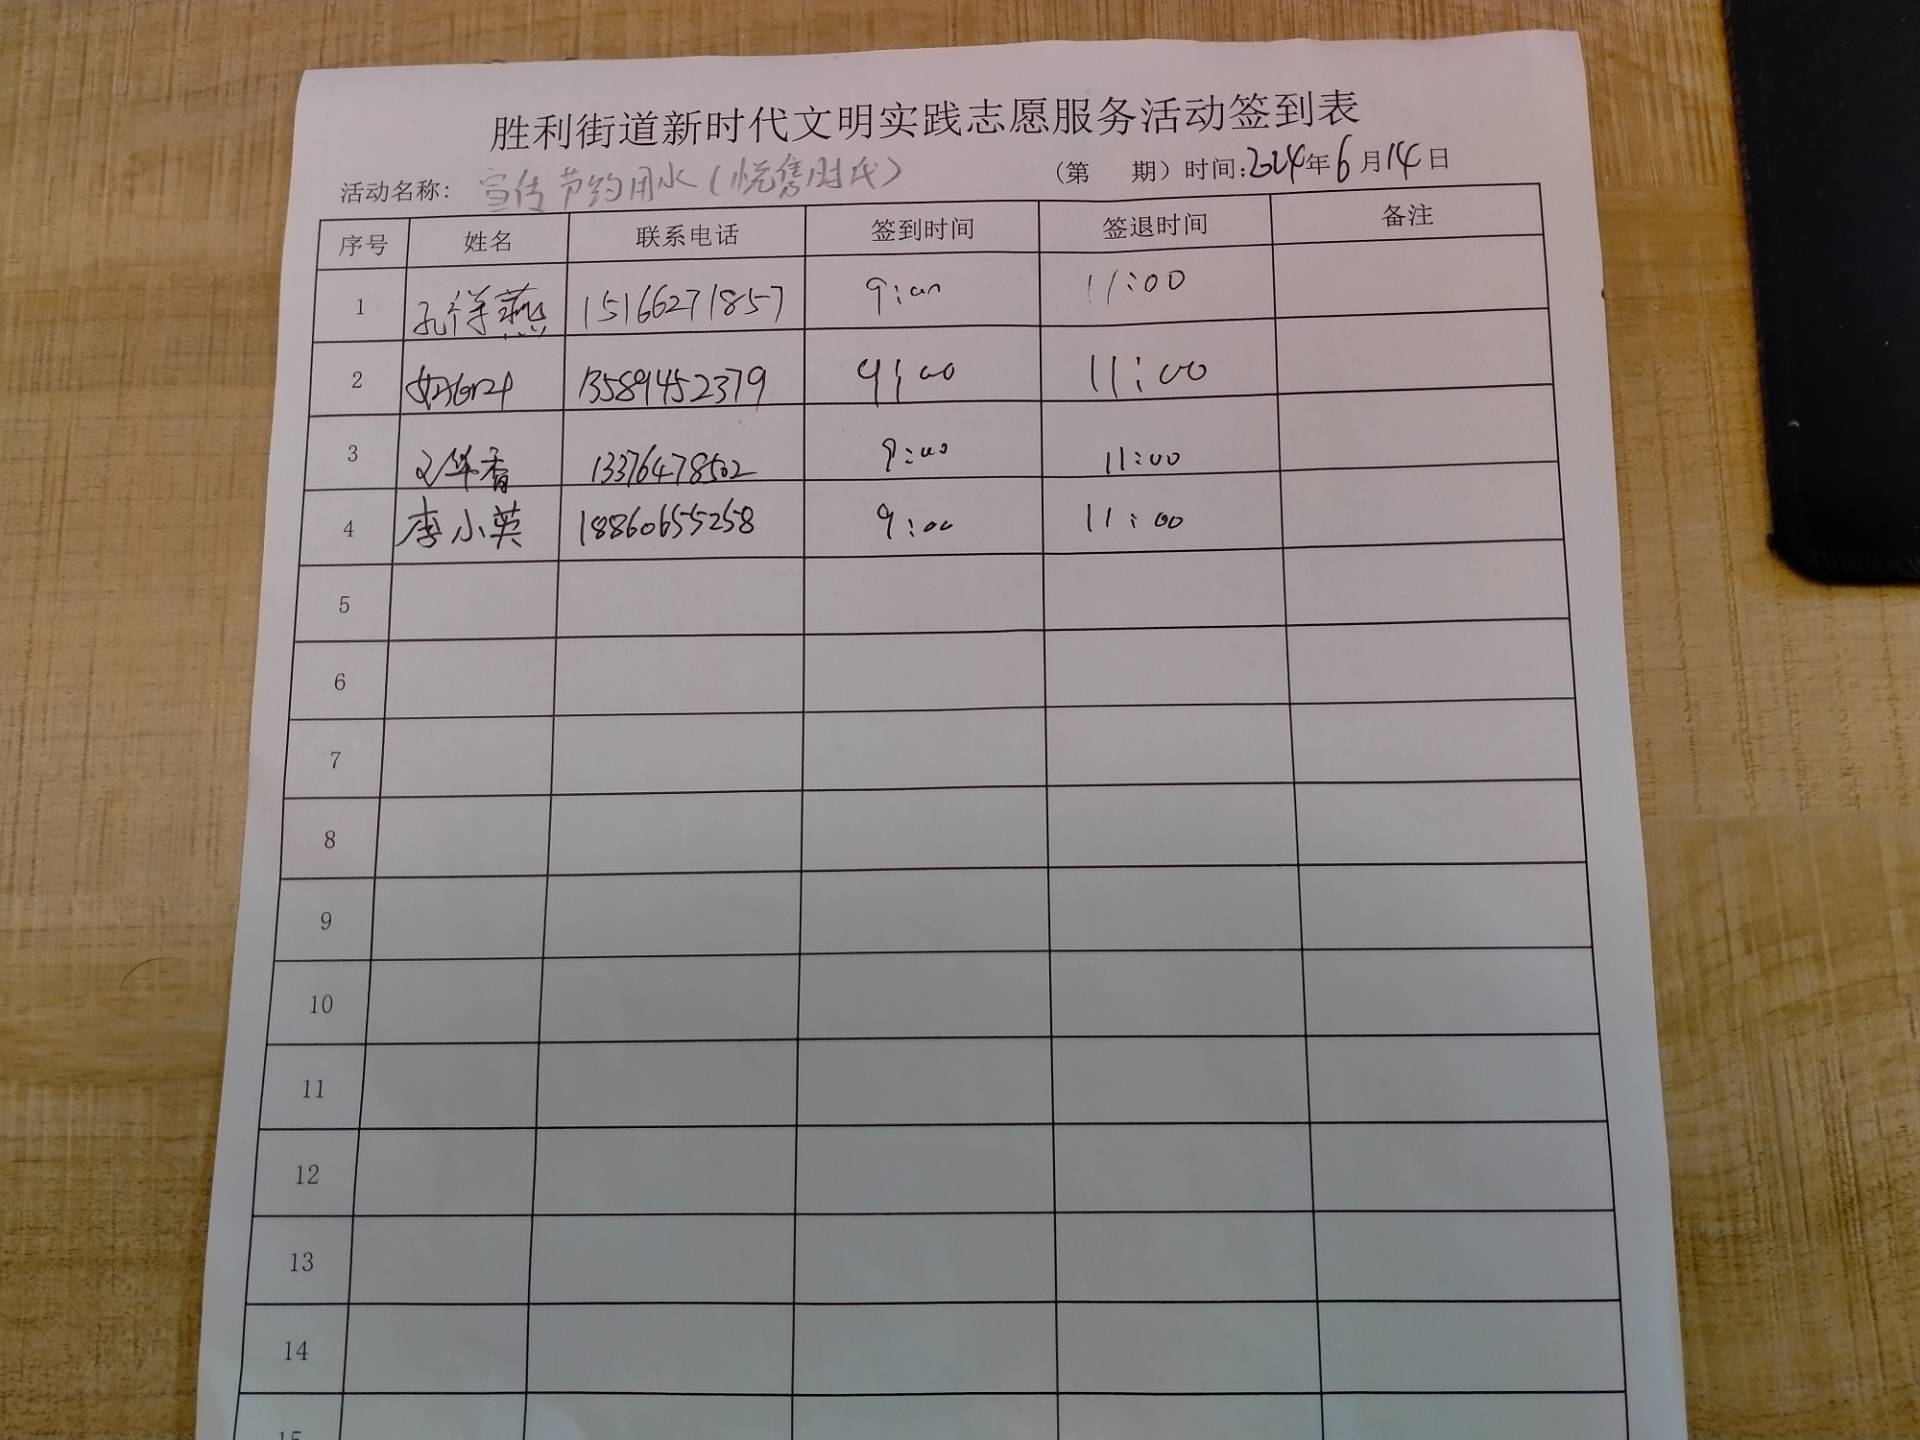 胜利街道新时代文明实践志愿服务活动签到表
活动名称: 宣传节约用水(悦隽时代) (第 期)时间:2024年6月14日
序号 姓名 联系电话 签到时间 签退时间 备注
1 孔祥燕 15166271857 9:00 11:00
2 13589452379 9:00 11:00
3 华香 13376478502 9:00 11:00
4 李小英 18860655258 9:00 11:00
5
6
7
8
9
10
11
12
13
14
15